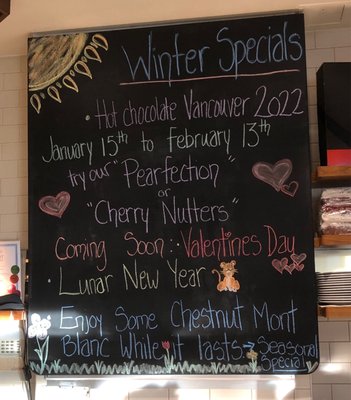 Winter Specials
• Hot chocolate Vancouver 2022
January 15th to February 13th
try our "Pearfection"
or
"Cherry Nutters"
Coming Soon: Valentines Day
• Lunar New Year
Enjoy Some Chestnut Mont
Blanc While it lasts → Seasonal
Special